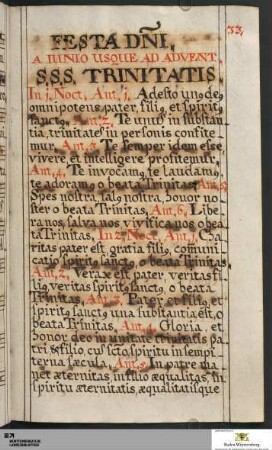 33.
FESTA DÑI,
A IUNIO USQUE AD ADVENT.
S.S.S. TRINITATIS.
In j. Noct. Ant. j. Adesto un9 de9
omnipotens pater, fili9, et spirit9
sanct9. Ant. 2. Te unus in substan
tia, trinitates in personis confite
mur. Ant. 3. Te semper idem esse
vivere, et intelligere profitemur.
Ant. 4. Te invocam9, te laudam9,
te adoram9, o beata Trinitas. Ant. 5.
Spes nostra, sal9 nostra, honor no
ster o beata Trinitas. Ant. 6. Libe
ra nos, salva nos vivifica nos o bea
ta Trinitas. In 2. Noct. Ant. j. Cha
ritas pater est, gratia fili9, communi
catio spirit9 sanct9, o beata Trinitas.
Ant. 2. Verax est pater, veritas fi
li9, veritas spirit9 sanct9, o beata
Trinitas. Ant. 3. Pater et fili9, et
spirit9 sanct9 una substantia est, o
beata Trinitas. Ant. 4. Gloria et
honor deo in unitate trinitatis pa
tri & filio, cu scto spiritu in sempi
terna sæcula. Ant. 5. In patre ma
net æternitas, in filio æqualitas, in
spiritu æternitatis, æqualitatisque
Baden-Württemberg